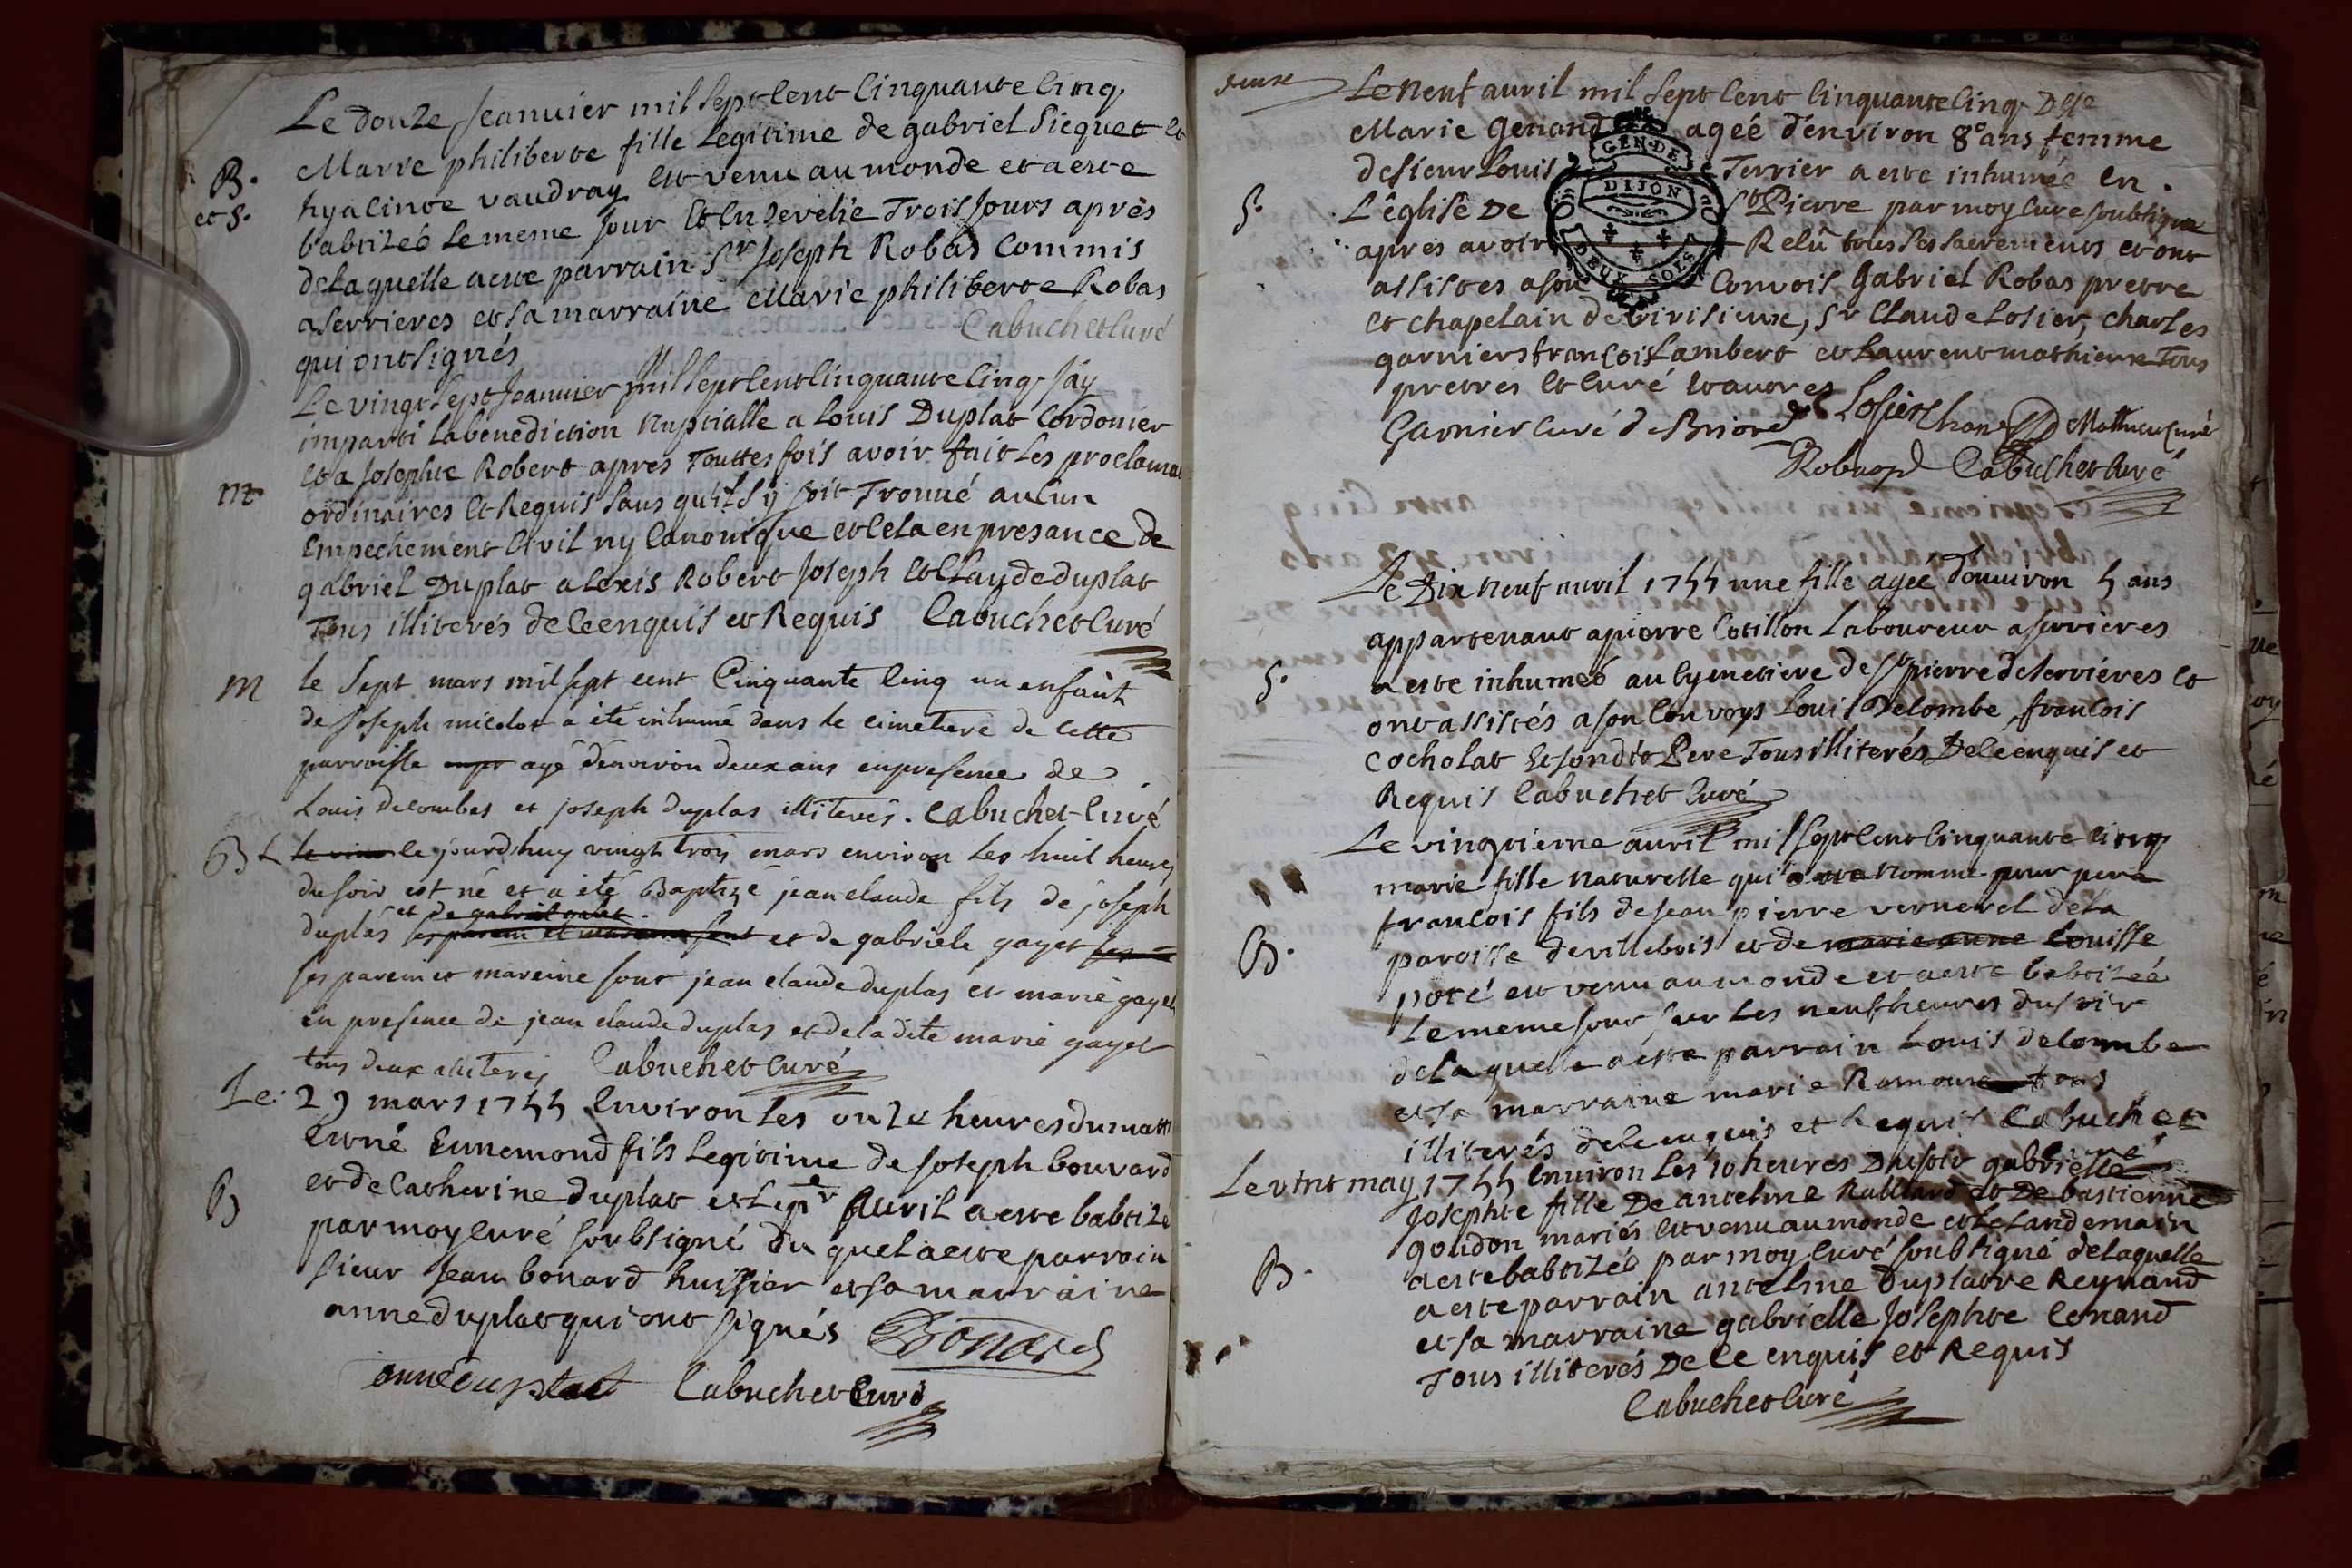 Le douze Jeanvier mil sept cent cinquante cinq
Marie philiberte fille Legitime de gabriel Sicquet et
B. hyacinte vaudray est venu au monde et a este
et S. babtizeé Le meme Jour et ensevelie Trois Jours après
de Laquelle a este parrain Sr Joseph Robas Commis
a serrieres et sa marraine Marie philiberte Robas
qui ont signés Cabuchet Curé
Le vingt sept Jeanvier mil sept cent cinquante cinq J'ay
imparti La benediction Nuptialle a Louis Duplat Cordonier
et a Josephte Robert apres Touttes fois avoir fait Les proclama
m ordinaires et Requis sans qu'il s'y soit Trouvé aucun
Empechement Civil ny Canonique et cela en presance de
gabriel Duplat alexis Robert Joseph et Claude duplat
Tous illiterés de ce enquis et Requis Cabuchet Curé
m le Sept mars mil sept cent Cinquante Cinq un enfant
de Joseph micolot a été inhumé dans le cimetiere de Cette
parroisse agé d'environ deux ans en presence de
Louis decombes et joseph duplas illiterés. Cabuchet Curé
B le jourdhuy vingt trois mars environ les huit heures
du soir est né et a été Baptizé jean claude fils de joseph
et de gabriel gaiet
duplas ses parein et mareine sont et de gabriele gayet ses
ses parein et mareine sont jean claude duplas et marie gayet
en presence de jean claude duplas et de la dite marie gayet
tous deux illiterés Cabuchet Curé
Le 29 mars 1755 Environ Les onze heures du matt
Est né Ennemond fils Legitime de Joseph bouvard
B et de Catherine duplat et Le pr Avril a este babtizé
par moy curé soubsigné du quel a este parrain
sieur Jean bonard huissier et sa marraine
anne duplat qui ont signés Bonard
anne duplat Cabuchet Curé
Le neuf avril mil sept cent cinquante cinq Dlle
Marie Genand ageé d'environ 80 ans femme
de sieur Louis Terrier a este inhumeé en
S. L'église De St Pierre par moy curé soubsigné
après avoir Relû tous ses sacrements et ont
assistes a son Convois Gabriel Robas pretre
et chapelain de virisieux, Sr Claude Losier, charles
garnier francois Lambert et Laurent mathieux Tous
pretres et curé et autres Losier
Garnier curé de Briord Mathieu curé
Cabuchet Curé
GEN. DE
DIJON
DEUX SOLS
Le Dix neuf avril 1755 une fille ageé d'environ 5 ans
appartenant a pierre Cotillon Laboureur a serrieres
S. a este inhumeé au Cymetiere de St pierre de serrieres et
ont assistés a son Convoys Louis Delombe francois
Cocholat et son dit Pere Tous illiterés De ce enquis et
Requis Cabuchet Curé
Le vingtieme avril mil sept cent cinquante cinq
marie fille naturelle qui a nomme pour pere
francois fils de Jean pierre vernerel de La
B. paroisse de villebois et de marie anne Louisse
poté est venu au monde et a este babtizeé
Le meme Jour sur Les neuf heures du soir
de La quelle a este parrain Louis delombe
et sa marraine marie Ramoux tous
illiterés de ce enquis et Requis Cabuchet
curé
Le vint may 1755 Environ Les 10 heures Du soir gabrielle
Josephte fille De antelme Rabliard et De bastienne
goudon mariés est venu au monde et Le Landemain
B. a este babtizeé par moy curé soubsigné de Laquelle
a este parrain antelme Duplatre Reynaud
et sa marraine gabrielle Josephte Conand
Tous illiterés De ce enquis et Requis
Cabuchet Curé